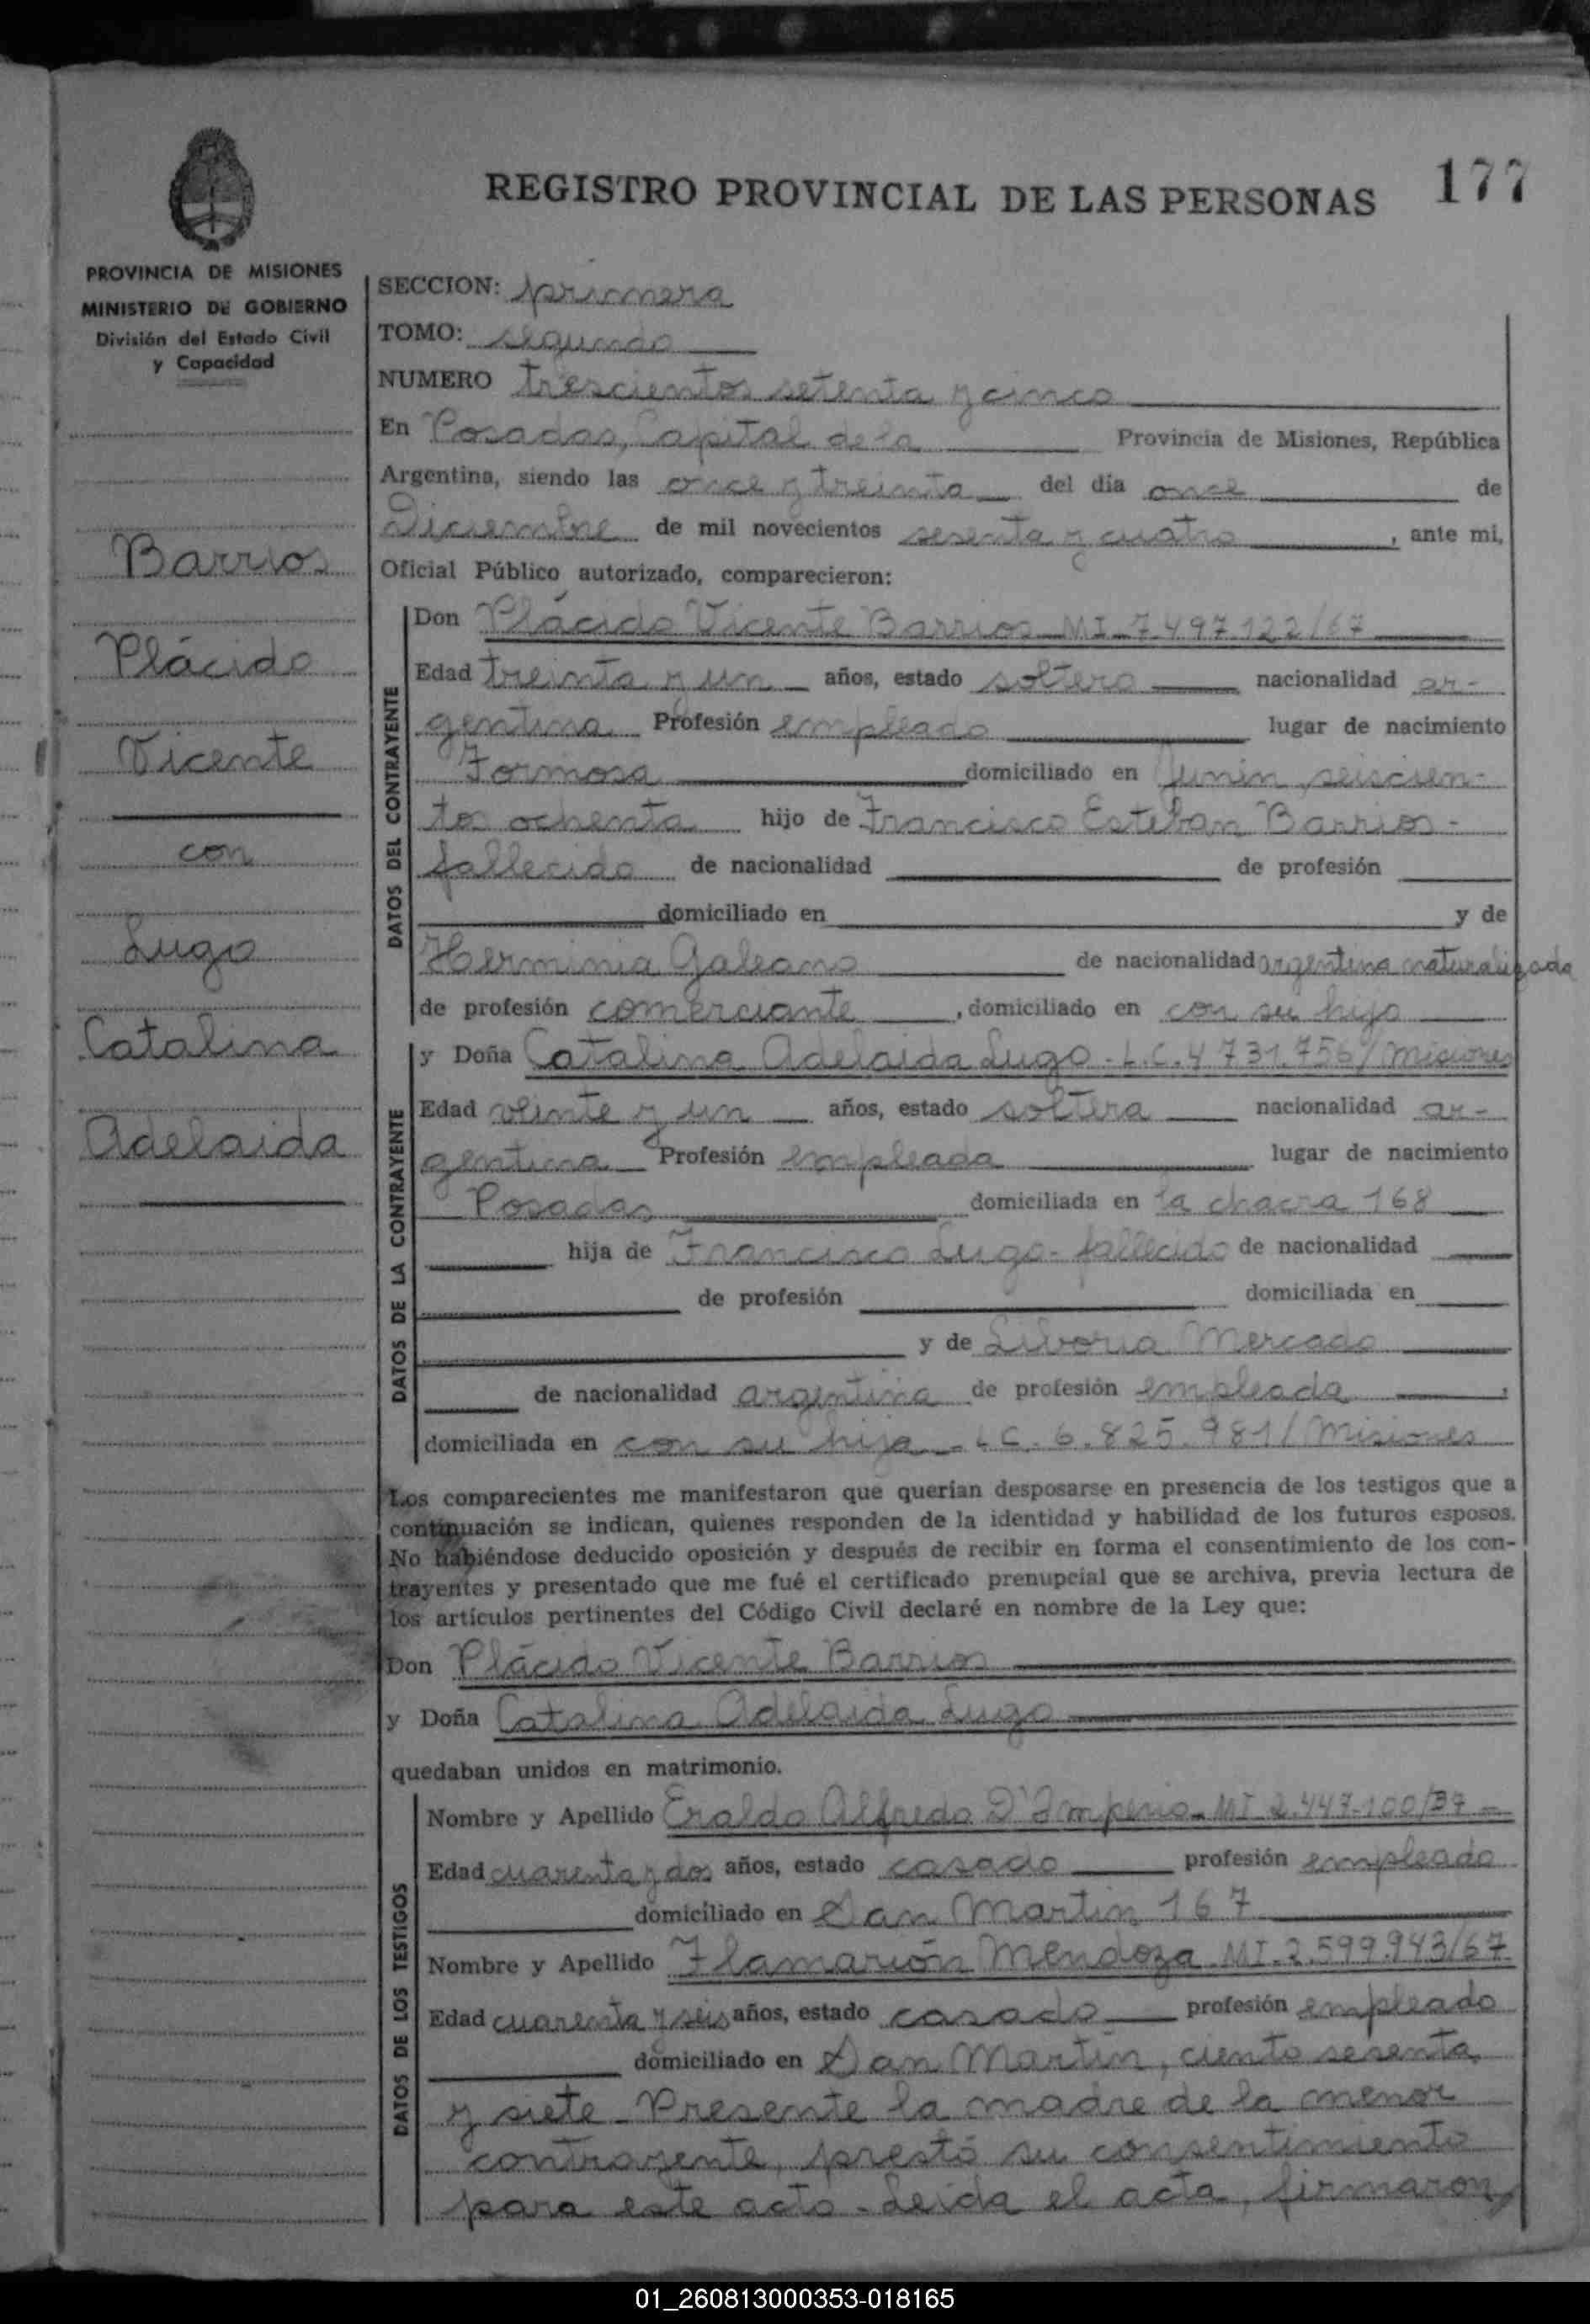 REGISTRO PROVINCIAL DE LAS PERSONAS 177
PROVINCIA DE MISIONES
MINISTERIO DE GOBIERNO
División del Estado Civil
y Capacidad
Barrios
Plácido
Vicente
con
Lugo
Catalina
Adelaida
SECCION: primera
TOMO: segundo
NUMERO trescientos setenta y cinco
En Posadas, Capital de la Provincia de Misiones, República
Argentina, siendo las once y treinta del día once de
Diciembre de mil novecientos sesenta y cuatro, ante mi,
Oficial Público autorizado, comparecieron:
DATOS DEL CONTRAYENTE
Don Plácido Vicente Barrios MI 7.497.122/67
Edad treinta y un años, estado soltero nacionalidad ar-
gentina Profesión empleado lugar de nacimiento
Formosa domiciliado en Junín, seiscien-
tos ochenta hijo de Francisco Esteban Barrios-
fallecido de nacionalidad de profesión
domiciliado en y de
Herminia Galeano de nacionalidad argentina naturalizada
de profesión comerciante, domiciliado en con su hijo
DATOS DE LA CONTRAYENTE
y Doña Catalina Adelaida Lugo - L.C. 4.731.756/Misiones
Edad veinte y un años, estado soltera nacionalidad ar-
gentina Profesión empleada lugar de nacimiento
Posadas domiciliada en la chacra 168
hija de Francisco Lugo - fallecido de nacionalidad
de profesión domiciliada en
y de Liboria Mercado
de nacionalidad argentina de profesión empleada,
domiciliada en con su hija - LC. 6.825.981/Misiones
Los comparecientes me manifestaron que querían desposarse en presencia de los testigos que a
continuación se indican, quienes responden de la identidad y habilidad de los futuros esposos.
No habiéndose deducido oposición y después de recibir en forma el consentimiento de los con-
trayentes y presentado que me fué el certificado prenupcial que se archiva, previa lectura de
los artículos pertinentes del Código Civil declaré en nombre de la Ley que:
Don Plácido Vicente Barrios
y Doña Catalina Adelaida Lugo
quedaban unidos en matrimonio.
DATOS DE LOS TESTIGOS
Nombre y Apellido Eraldo Alfredo D'Imperio - MI 2.447.100/37
Edad cuarenta y dos años, estado casado profesión empleado
domiciliado en San Martin 167
Nombre y Apellido Flamarión Mendoza MI. 2.599.943/67
Edad cuarenta y seis años, estado casado profesión empleado
domiciliado en San Martín, ciento sesenta
y siete - Presente la madre de la menor
contrayente, prestó su consentimiento
para este acto - Leída el acta, firmaron,
01_260813000353-018165